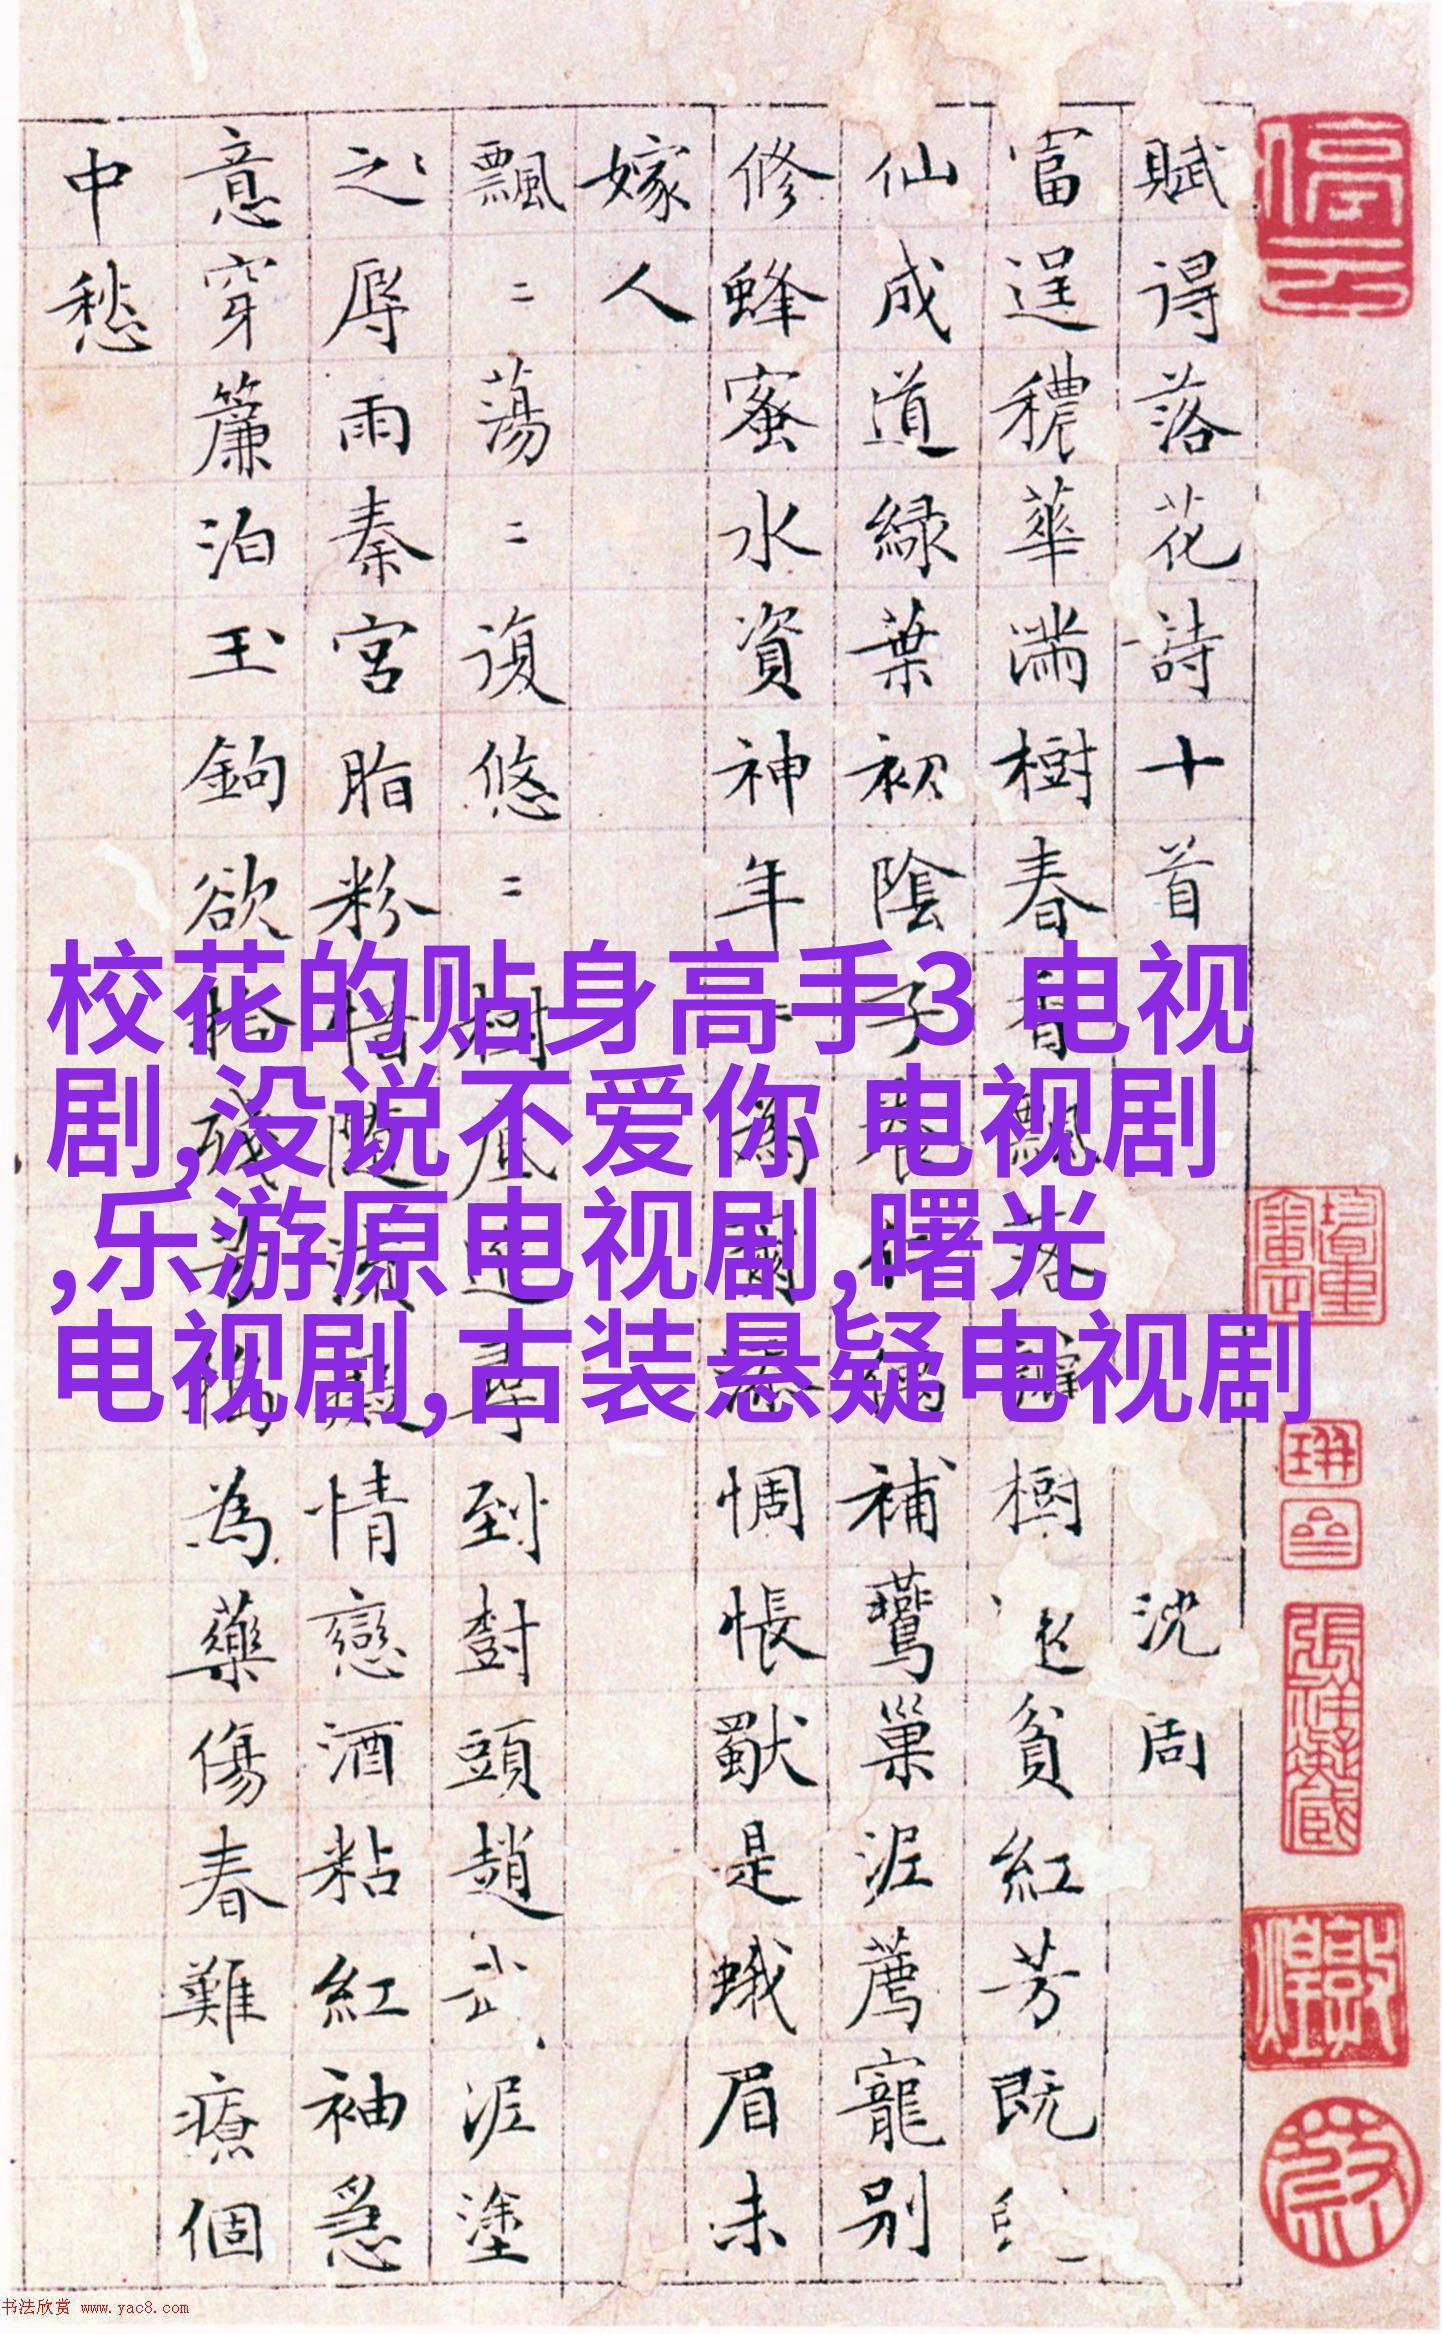 賦得落花詩十首 沈周
富逞穠華滿樹春香飄落瓣樹 貧紅芳既
仙成道綠葉初陰子養仁偶補鶯巢泥薦寵別
修蜂蜜水資神年=為爾添惆悵獸是蛾眉未
嫁人
飄=蕩=復悠=樹底追尋到樹頭趙武泥塗
之辱雨秦宮脂粉惜隨流癡情戀酒粘紅袖急
意穿簾泊玉鉤欲拾殘芳搗為藥傷春難療個
中愁
校花的贴身高手3 电视
剧,没说不爱你 电视剧
,乐游原电视剧,曙光
电视剧,古装悬疑电视剧
停云
书法欣赏 www.yac8.com